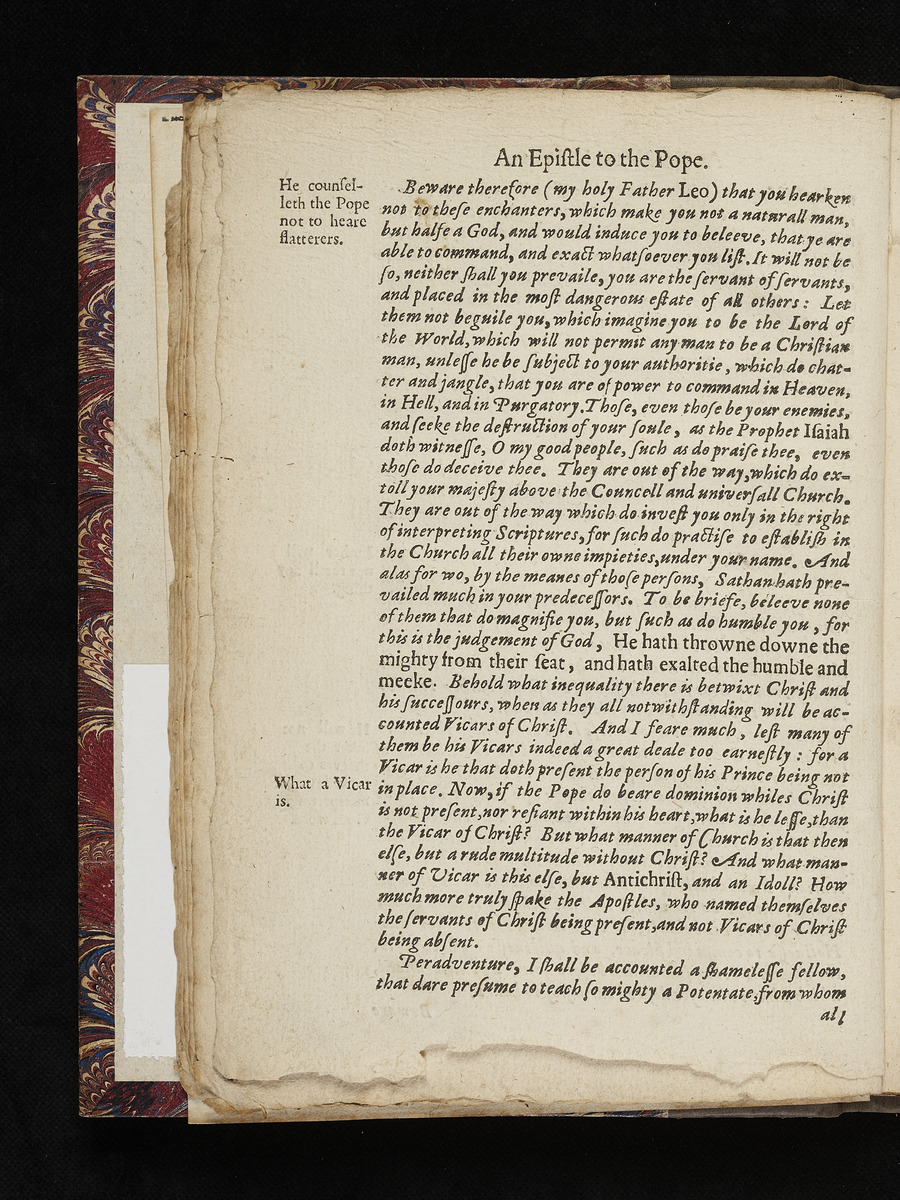 An Epiſtle to the Pope.
He counſel-
leth the Pope
not to heare
flatterers.
Beware therefore (my holy Father Leo) that you hearken
not to theſe enchanters, which make you not a naturall man,
but halfe a God, and would induce you to beleeve, that ye are
able to command, and exact whatſoever you liſt. It will not be
ſo, neither ſhall you prevaile, you are the ſervant of ſervants,
and placed in the moſt dangerous eſtate of all others: Let
them not beguile you, which imagine you to be the Lord of
the World, which will not permit any man to be a Chriſtian
man, unleſſe he be ſubject to your authoritie, which do chat-
ter and jangle, that you are of power to command in Heaven,
in Hell, and in Purgatory. Thoſe, even thoſe be your enemies,
and ſeeke the deſtruction of your ſoule, as the Prophet Iſaiah
doth witneſſe, O my good people, ſuch as do praiſe thee, even
thoſe do deceive thee. They are out of the way, which do ex-
toll your majeſty above the Councell and univerſall Church.
They are out of the way which do inveſt you only in the right
of interpreting Scriptures, for ſuch do practiſe to eſtabliſh in
the Church all their owne impieties, under your name. And
alas for wo, by the meanes of thoſe perſons, Sathan hath pre-
vailed much in your predeceſſors. To be briefe, beleeve none
of them that do magnifie you, but ſuch as do humble you, for
this is the judgement of God, He hath throwne downe the
mighty from their ſeat, and hath exalted the humble and
meeke. Behold what inequality there is betwixt Chriſt and
his ſucceſſours, when as they all notwithſtanding will be ac-
counted Vicars of Chriſt. And I feare much, leſt many of
them be his Vicars indeed a great deale too earneſtly: for a
What a Vicar
is.
Vicar is he that doth preſent the perſon of his Prince being not
in place. Now, if the Pope do beare dominion whiles Chriſt
is not preſent, nor reſiant within his heart, what is he leſſe, than
the Vicar of Chriſt? But what manner of Church is that then
elſe, but a rude multitude without Chriſt? And what man-
ner of Vicar is this elſe, but Antichriſt, and an Idoll? How
much more truly ſpake the Apoſtles, who named themſelves
the ſervants of Chriſt being preſent, and not Vicars of Chriſt
being abſent.
Peradventure, I ſhall be accounted a ſhameleſſe fellow,
that dare preſume to teach ſo mighty a Potentate, from whom
all